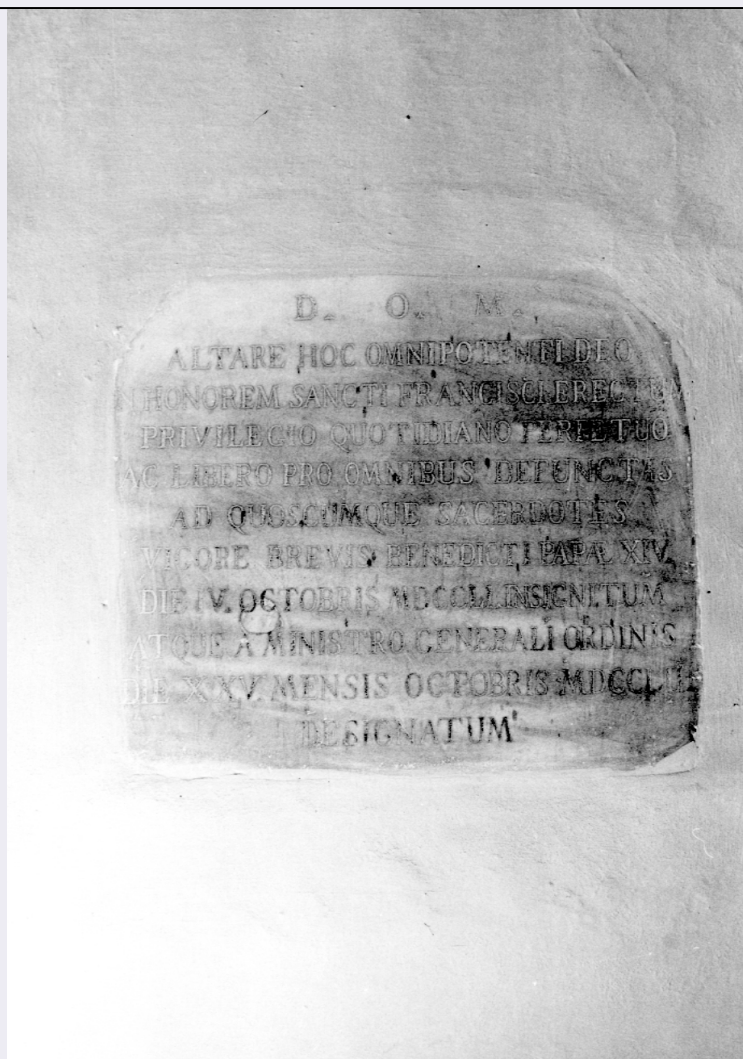 D. O. M.
ALTARE HOC OMNIPOTENTI DEO
IN HONOREM SANCTI FRANCISCI ERECTUM
PRIVILEGIO QUOTIDIANO PERPETUO
AC LIBERO PRO OMNIBUS DEFUNCTIS
AD QUOSCUMQUE SACERDOTES
VIGORE BREVIS BENEDICTI PAPÆ XIV
DIE IV. OCTOBRIS INSIGNITUM
ATQUE A MINISTRO GENERALI ORDINIS
DIE XXV. MENSIS OCTOBRIS
DESIGNATUM